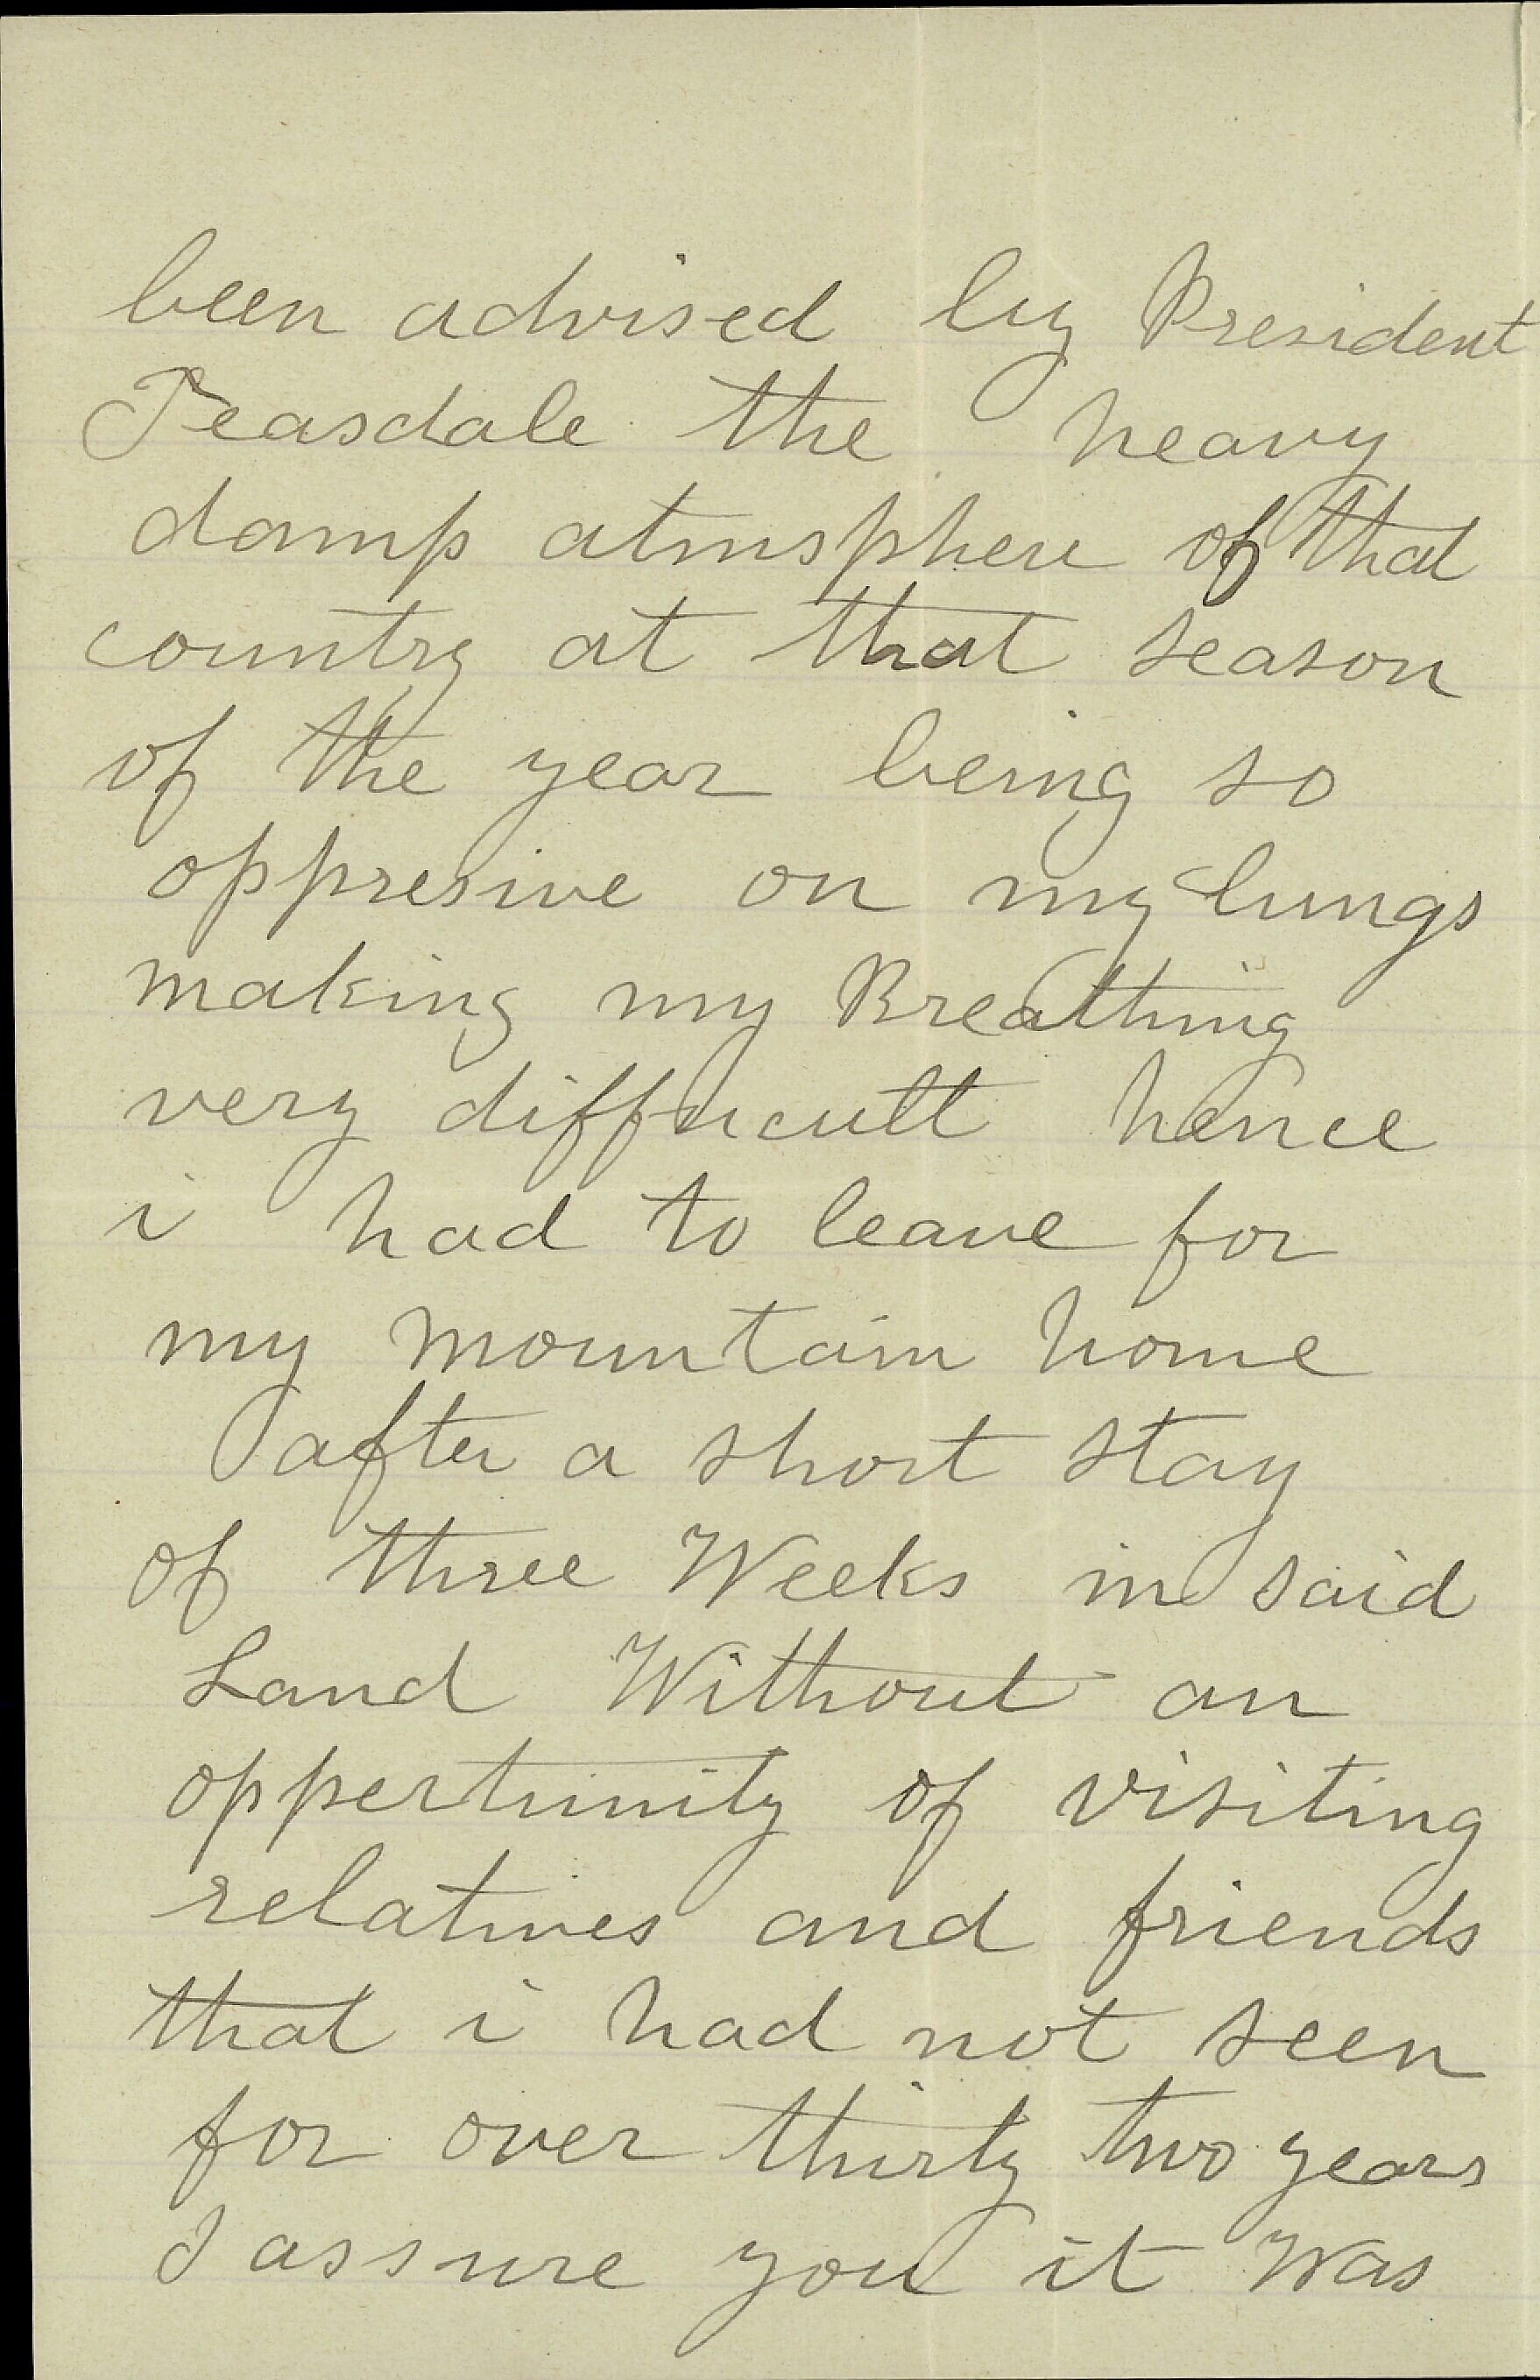 been advised by President
Teasdale the heavy
damp atmsphere of that
country at that season
of the year being so
oppresive on my lungs
making my Breathing
very difficult hence
i had to leave for
my mountain home
after a short stay
of three Weeks in said
Land Without an
oppertunity of visiting
relatives and friends
that i had not seen
for over thirty two years
I assure you it Was